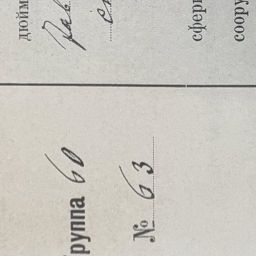 руппа 60
№ 63
дюйм
Рав
сфер
соору